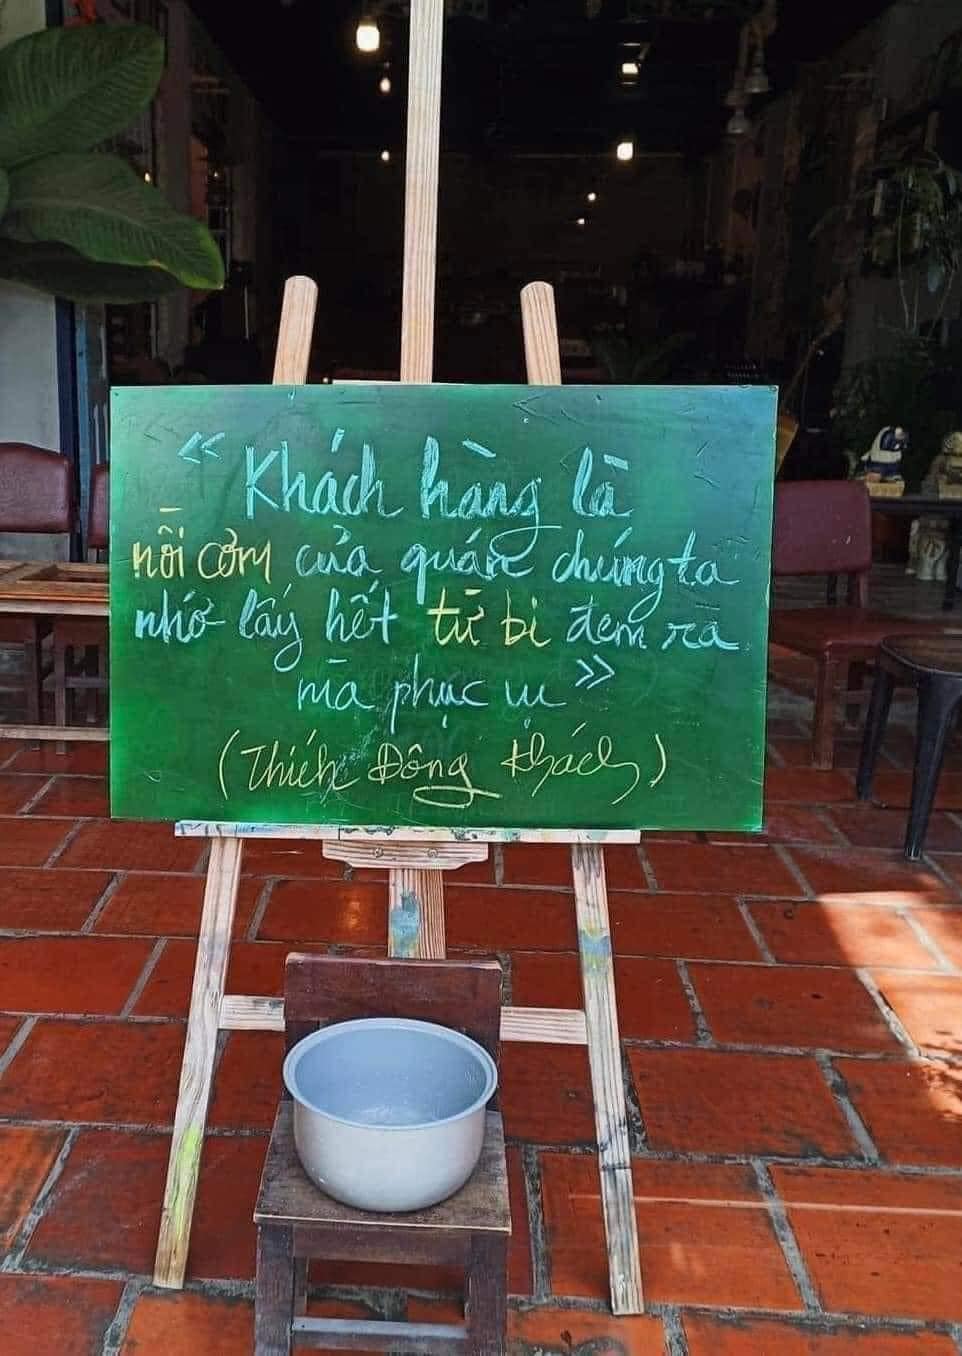 « Khách hàng là
nồi cơm của quán chúng ta
nhớ lấy hết từ bi đem ra
mà phục vụ »
(Thích Đông Khách)